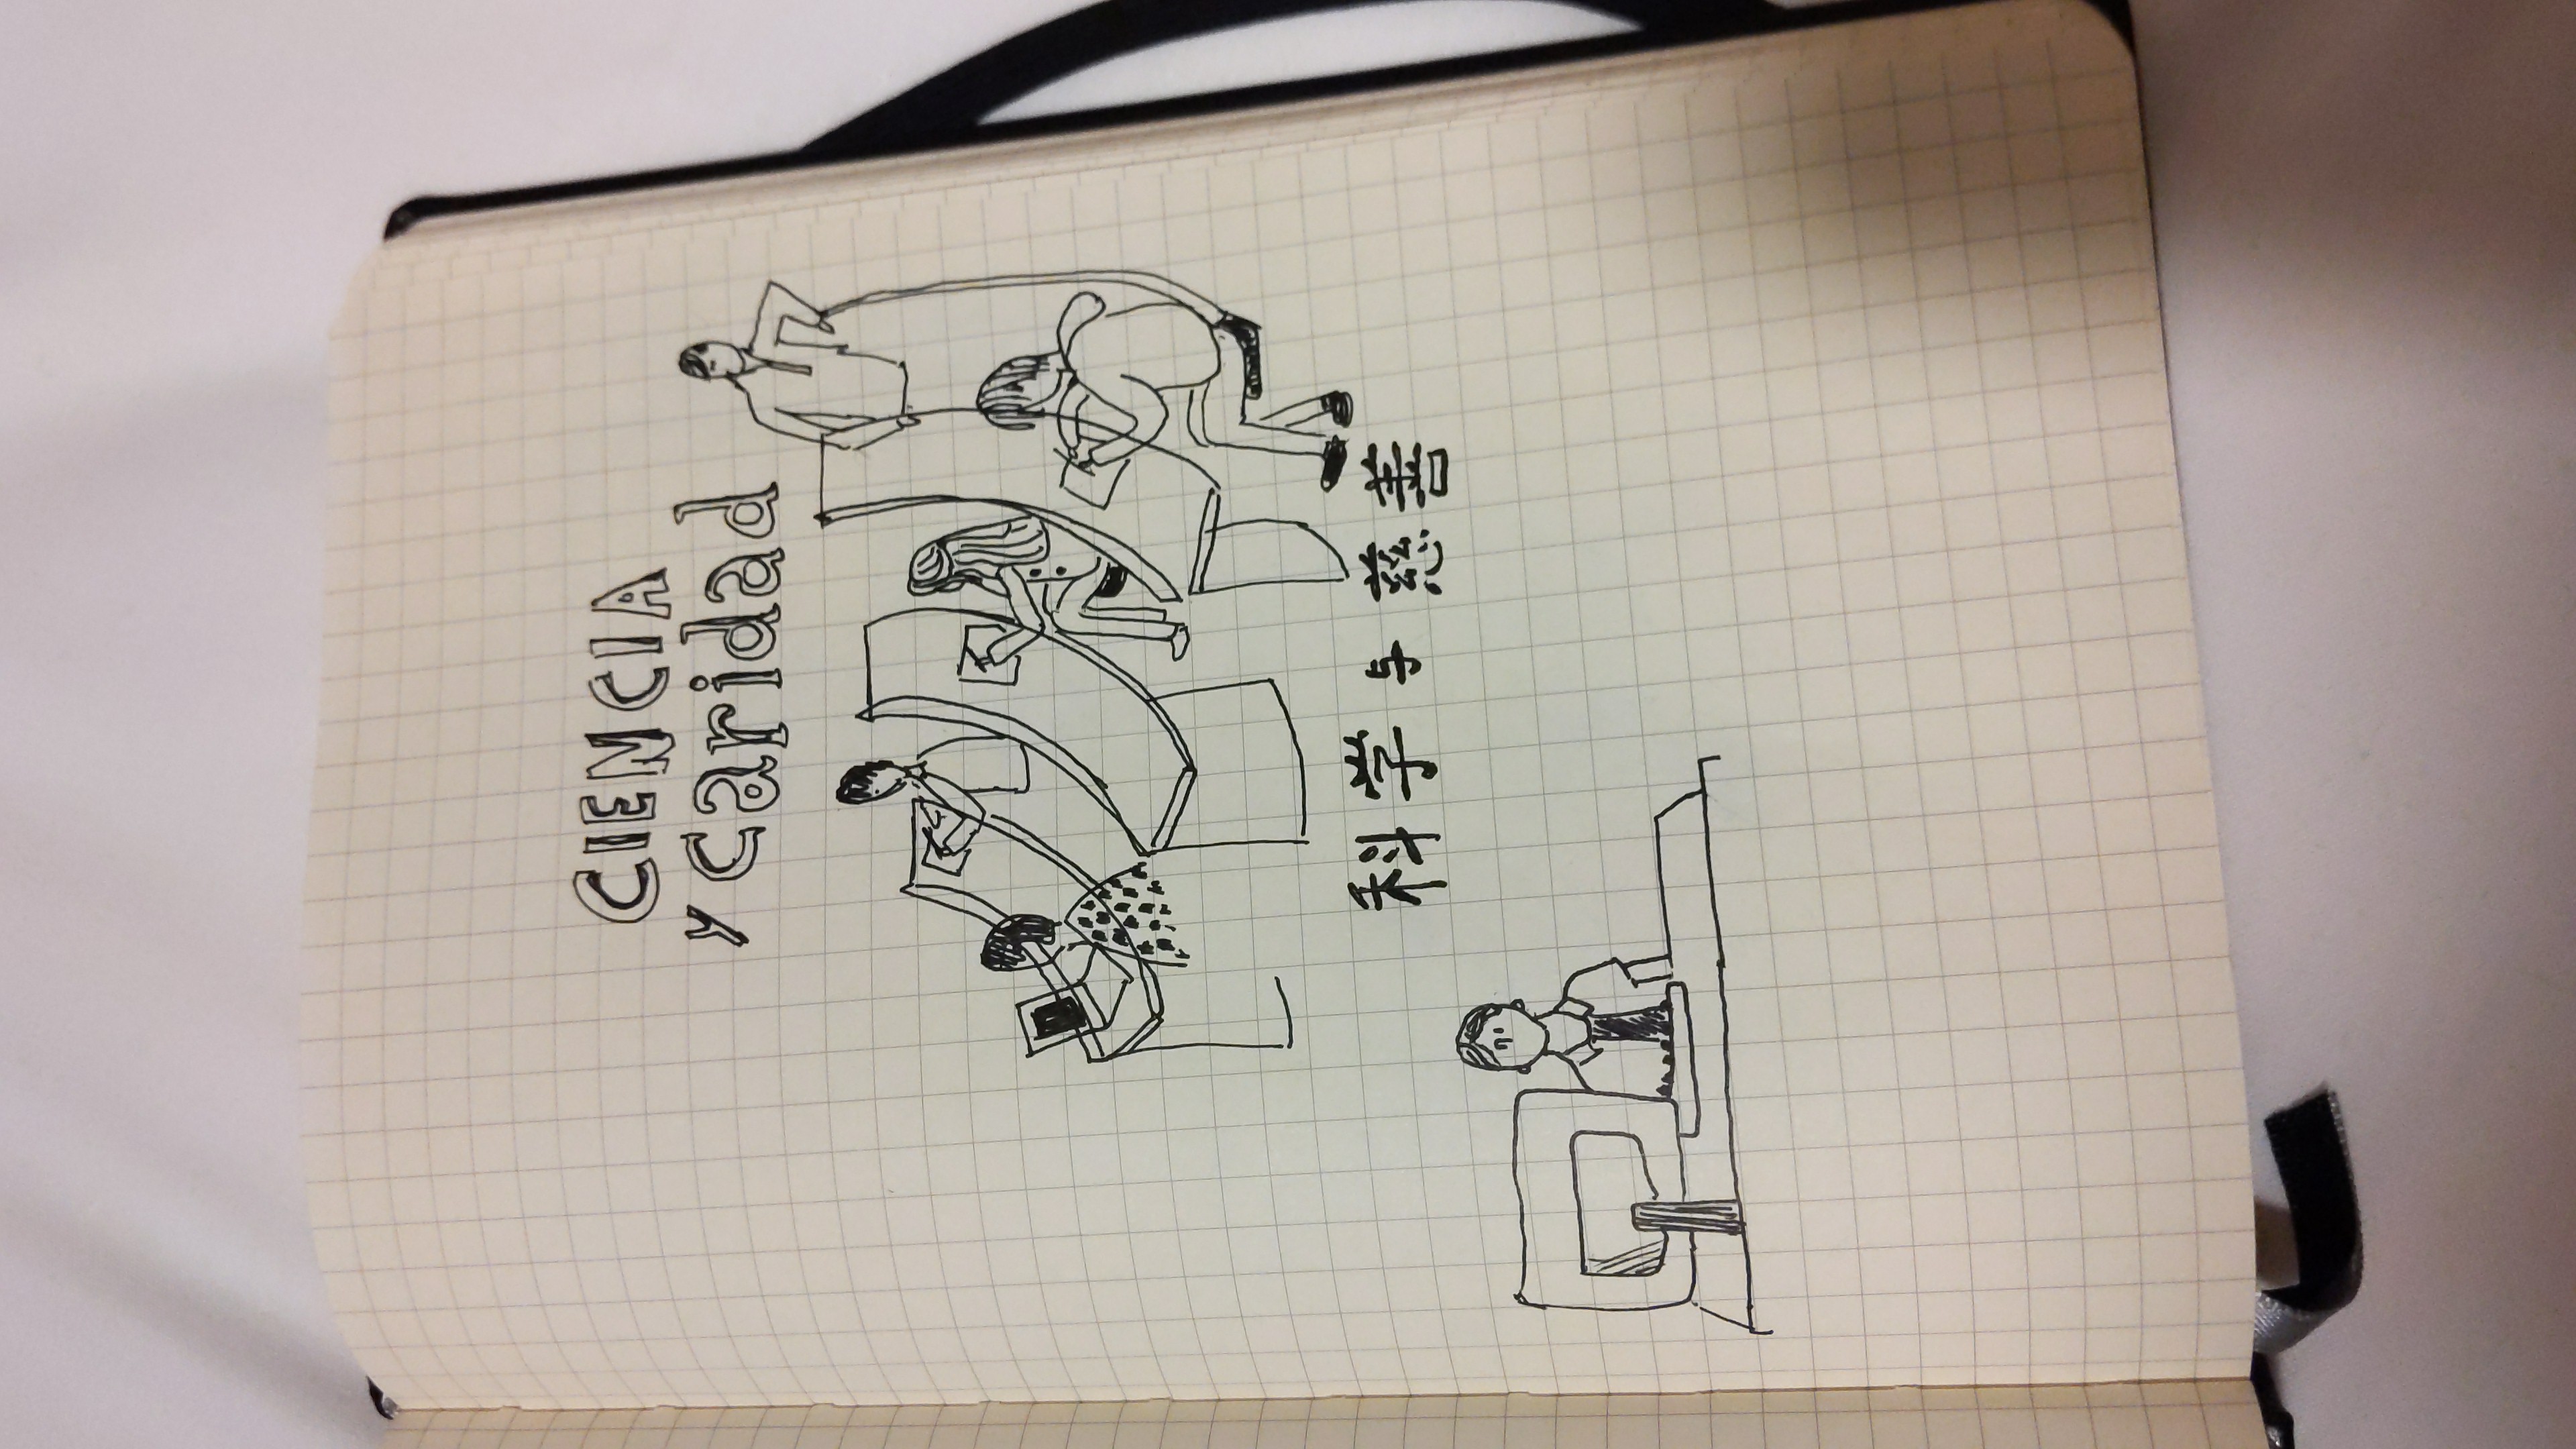 CIENCIA
y caridad
科学与慈善